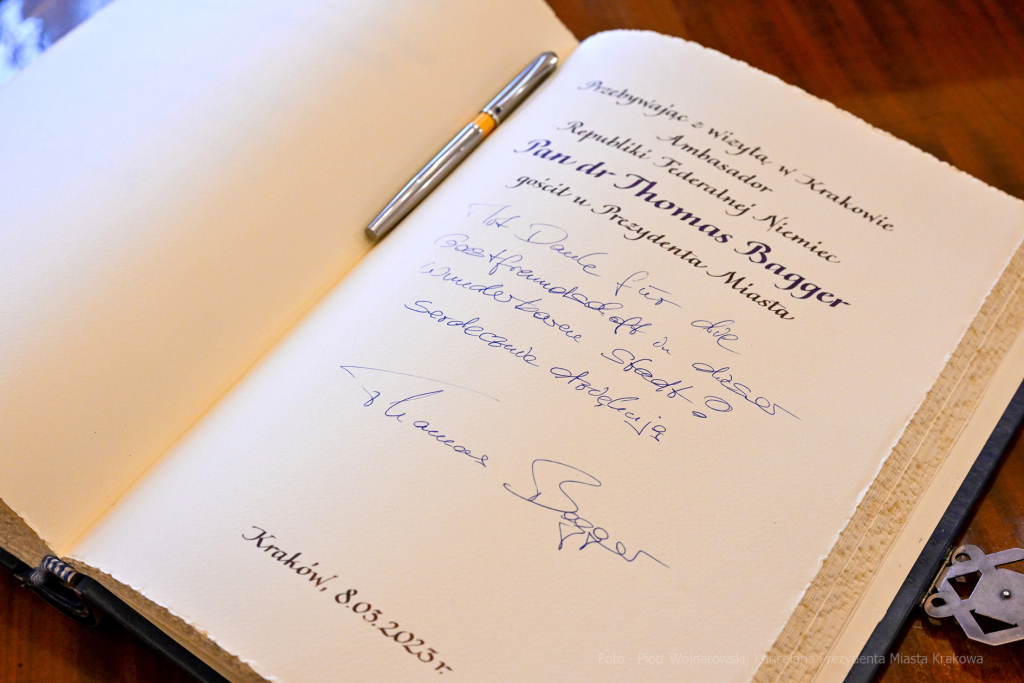 Przebywając z wizytą w Krakowie
Ambasador
Republiki Federalnej Niemiec
Pan dr Thomas Bagger
gościł u Prezydenta Miasta
Mit Danke für die
Gastfreundschaft in dieser
wunderbaren Stadt!
Serdecznie dziękuję
Thomas Bagger
Kraków, 8.03.2023 r.
Foto - Piotr Wojnarowski, Kancelaria Prezydenta Miasta Krakowa